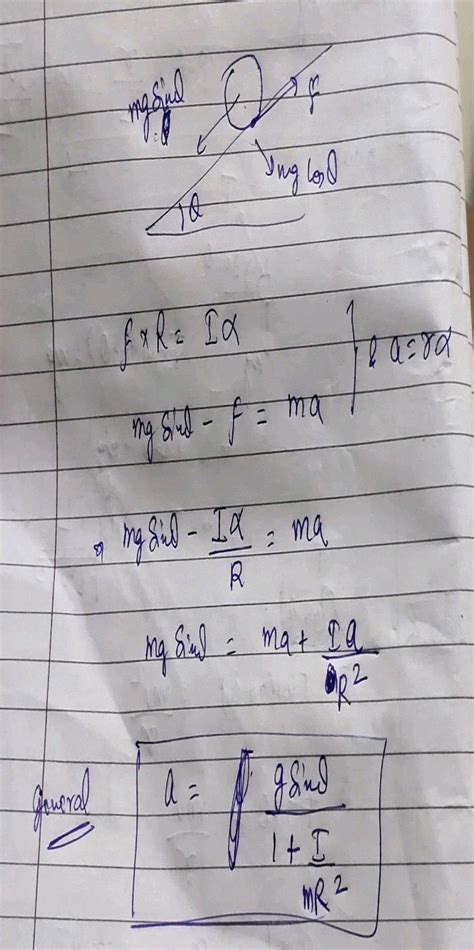 mg sinθ
f
mg cosθ
θ
f × R = Iα
& a = rα
mg sinθ - f = ma
⇒ mg sinθ - Iα/R = ma
mg sinθ = ma + Ia/R²
general
a = g sinθ / (1 + I/mR²)